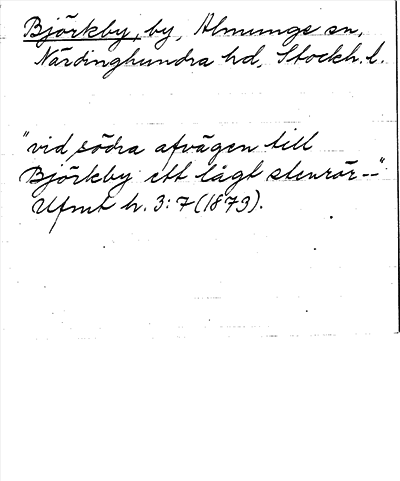 Björkby, by, Almunge sn,
Närdinghundra hd, Stockh. l.
"vid södra afvägen till
Björkby ett lågt stenrör--"
Ufmt h. 3:7 (1879).